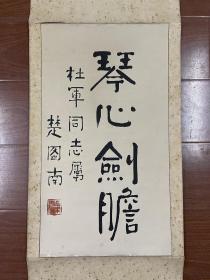 琴心劍膽
杜軍同志屬
楚图南